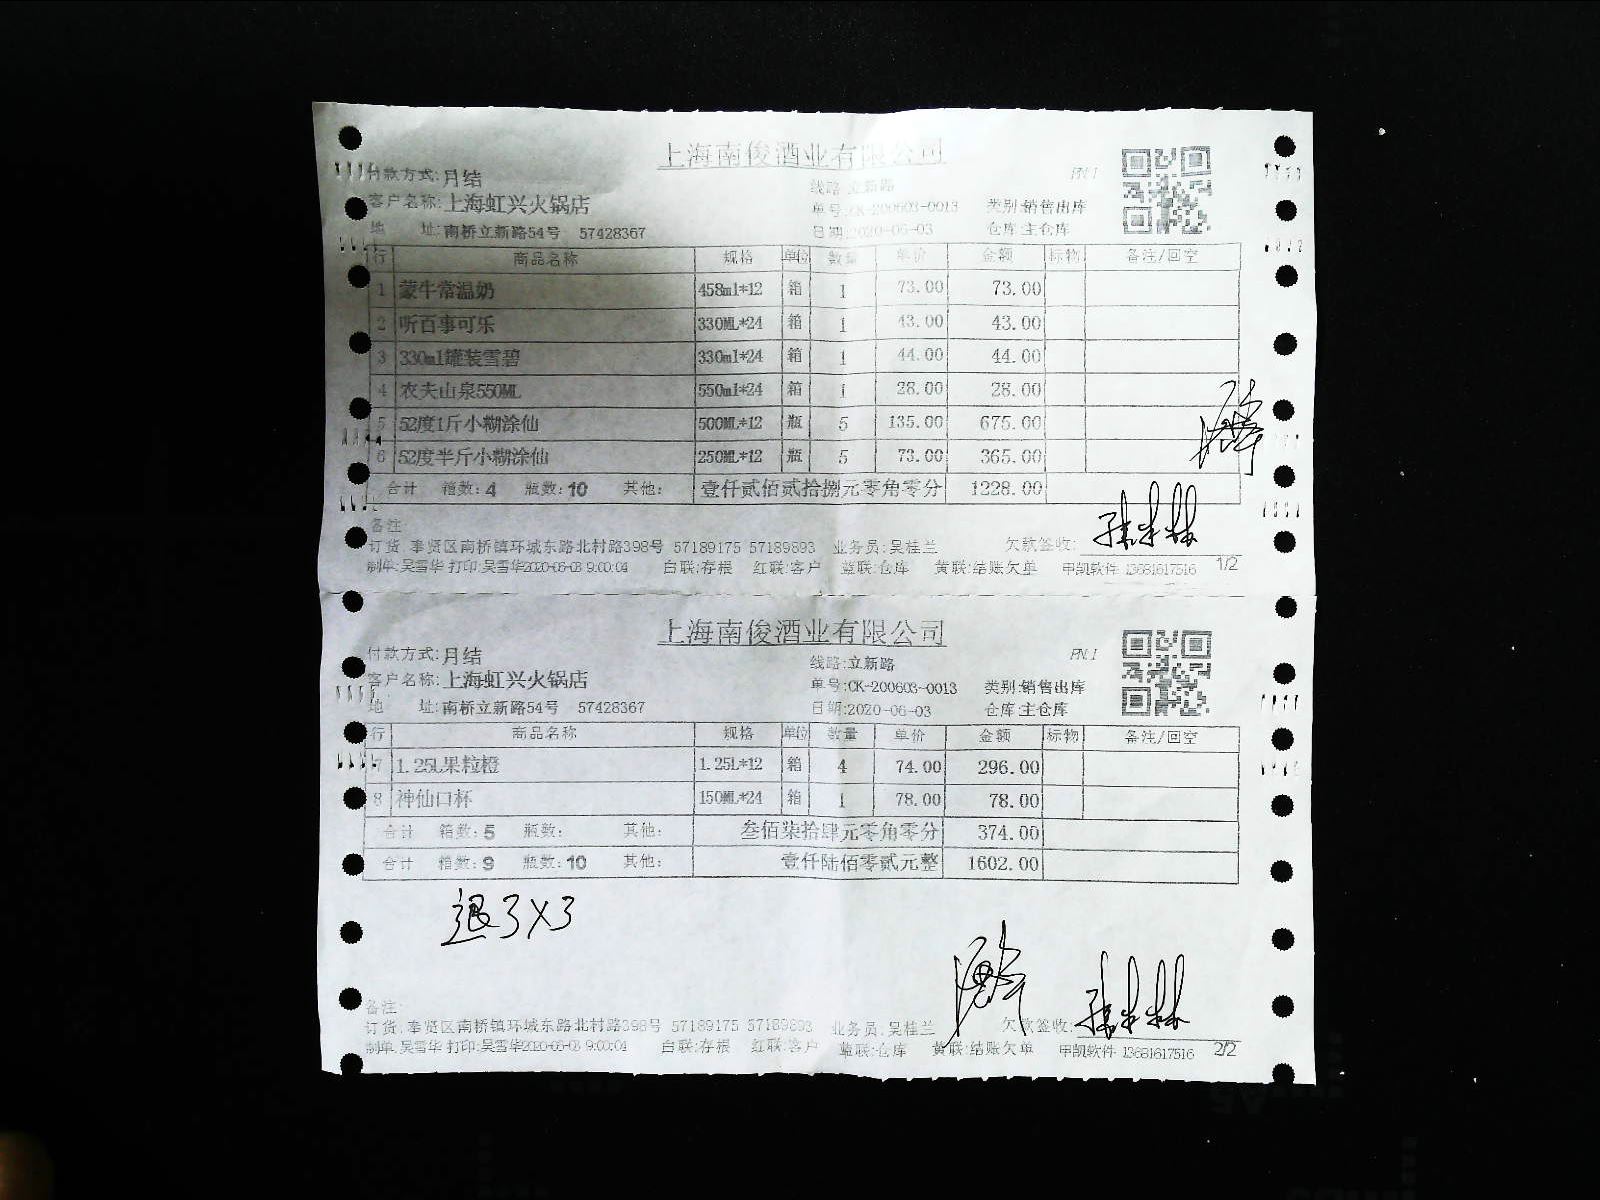 上海南俊酒业有限公司
付款方式:月结 线路:立新路 PN.1
客户名称:上海虹兴火锅店 单号:CK-200603-0013 类别:销售出库
地 址:南桥立新路54号 57428367 日期:2020-06-03 仓库:主仓库
行 商品名称 规格 单位 数量 单价 金额 标物 备注/回空
1 蒙牛常温奶 458ml*12 箱 1 73.00 73.00
2 听百事可乐 330ML*24 箱 1 43.00 43.00
3 330ml罐装雪碧 330ml*24 箱 1 44.00 44.00
4 农夫山泉550ML 550ml*24 箱 1 28.00 28.00
5 52度1斤小糊涂仙 500ML*12 瓶 5 135.00 675.00
6 52度半斤小糊涂仙 250ML*12 瓶 5 73.00 365.00
合计 箱数:4 瓶数:10 其他: 壹仟贰佰贰拾捌元零角零分 1228.00
备注:
订货:奉贤区南桥镇环城东路北村路398号 57189175 57189893 业务员:吴桂兰 欠款签收:
制单:吴雪华 打印:吴雪华2020-06-03 9:00:04 白联:存根 红联:客户 蓝联:仓库 黄联:结账欠单 甲凯软件 13681617516 1/2
上海南俊酒业有限公司
付款方式:月结 线路:立新路 PN.1
客户名称:上海虹兴火锅店 单号:CK-200603-0013 类别:销售出库
地 址:南桥立新路54号 57428367 日期:2020-06-03 仓库:主仓库
行 商品名称 规格 单位 数量 单价 金额 标物 备注/回空
7 1.25L果粒橙 1.25L*12 箱 4 74.00 296.00
8 神仙口杯 150ML*24 箱 1 78.00 78.00
合计 箱数:5 瓶数: 其他: 叁佰柒拾肆元零角零分 374.00
合计 箱数:9 瓶数:10 其他: 壹仟陆佰零贰元整 1602.00
退了X3
备注:
订货:奉贤区南桥镇环城东路北村路398号 57189175 57189893 业务员:吴桂兰 欠款签收:
制单:吴雪华 打印:吴雪华2020-06-03 9:00:04 白联:存根 红联:客户 蓝联:仓库 黄联:结账欠单 甲凯软件 13681617516 2/2